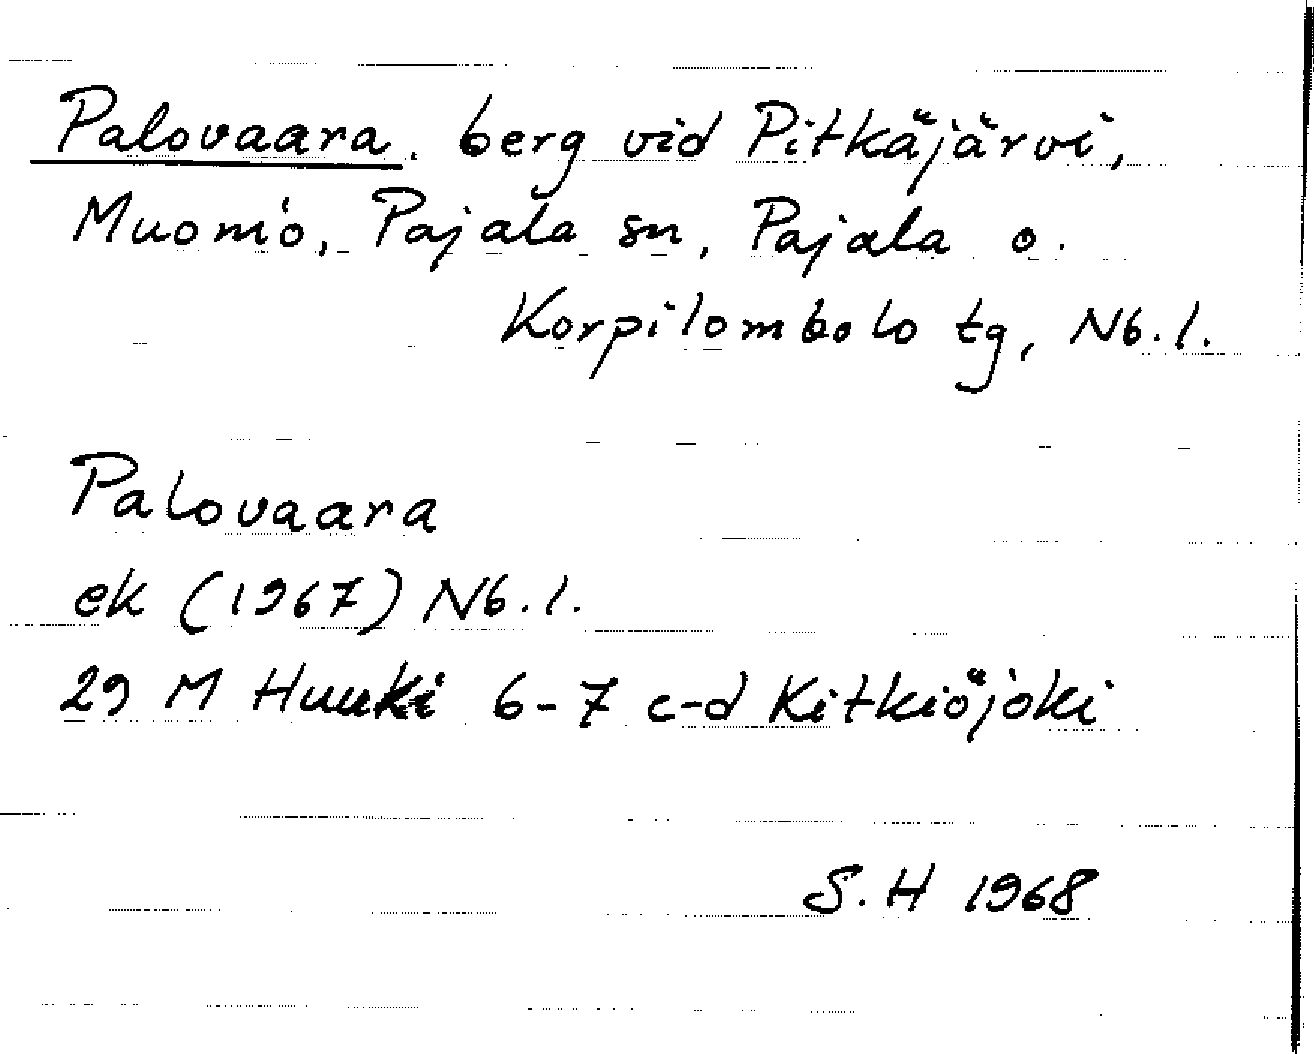 Palovaara, berg vid Pitkäjärvi,
Muonio, Pajala sn, Pajala o.
Korpilombolo tg, Nb. l.
Palovaara
ek (1967) Nb. l.
29 M Huuki 6-7 c-d Kitkiöjoki
S. H 1968